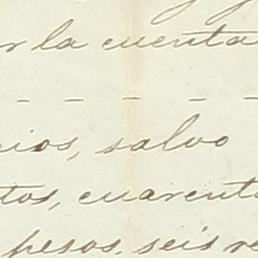 r la cuenta
- - - - -
cios, salvo
tos, cuarenta
pesos, seis re